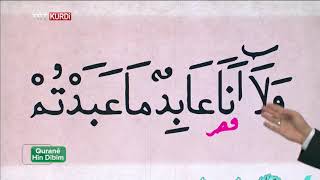 KURDÎ
وَلَٓا اَنَا۬ عَابِدٌ مَا عَبَدْتُمْ
قصر
Quranê
Hîn Dibim